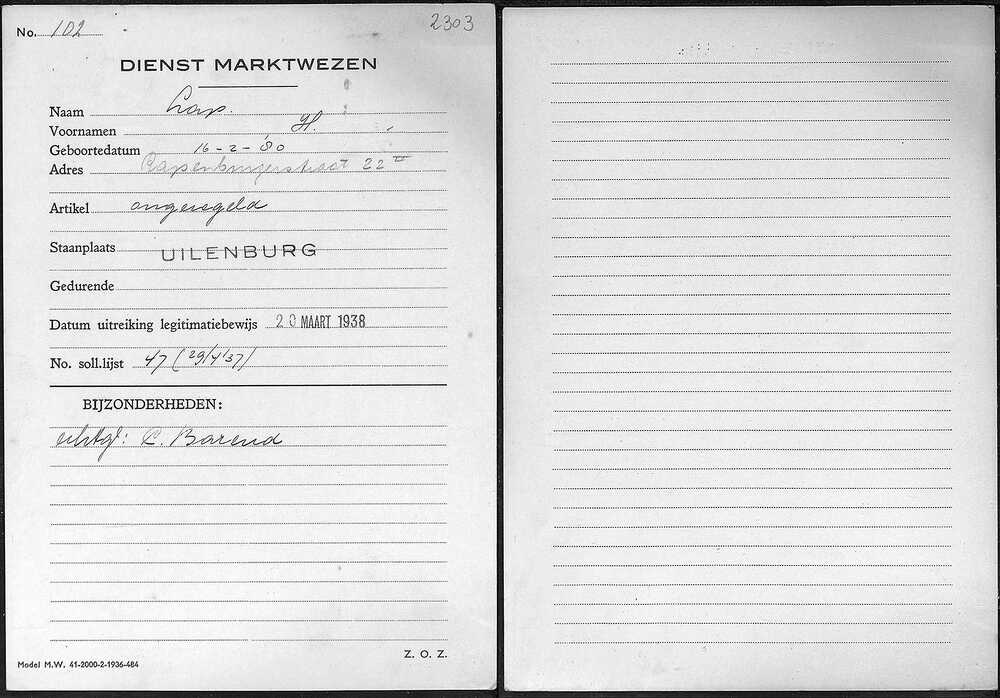 No. 102
2303
DIENST MARKTWEZEN
Naam Lap.
Voornamen H.
Geboortedatum 16-2-'80
Adres Rapenburgerstraat 22 II
Artikel ongeregeld
Staanplaats UILENBURG
Gedurende
Datum uitreiking legitimatiebewijs 20 MAART 1938
No. soll.lijst 47 (29/4/37)
BIJZONDERHEDEN:
C. Barend
Z. O. Z.
Model M.W. 41-2000-2-1936-484